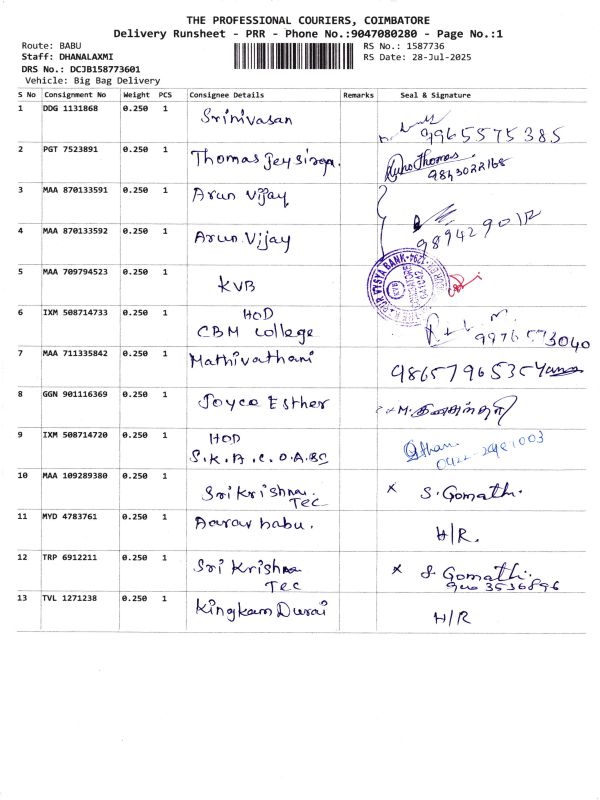 THE PROFESSIONAL COURIERS, COIMBATORE
Delivery Runsheet - PRR - Phone No.:9047080280 - Page No.:1
Route: BABU
RS No.: 1587736
Staff: DHANALAXMI
RS Date: 28-Jul-2025
DRS No.: DCJB158773601
Vehicle: Big Bag Delivery
S No Consignment No Weight PCS Consignee Details Remarks Seal & Signature
1 DDG 1131868 0.250 1 Srinivasan 9965575385
2 PGT 7523891 0.250 1 Thomas Jeysinga. Thomas 9843022168
3 MAA 870133591 0.250 1 Arun Vijay
4 MAA 870133592 0.250 1 Arun Vijay
5 MAA 709794523 0.250 1 KVB
6 IXM 508714733 0.250 1 HOD
CBM College 9976573040
7 MAA 711335842 0.250 1 Mathivathani 9865796535
8 GGN 901116369 0.250 1 Joyce Esther
9 IXM 508714720 0.250 1 HOD
S.K.A.C.O.A.BS
10 MAA 109289380 0.250 1 Srikrishna. x S. Gomathi.
TEC
11 MYD 4783761 0.250 1 Aarav babu. H/R.
12 TRP 6912211 0.250 1 Sri Krishna x S. Gomathi.
TEC
13 TVL 1271238 0.250 1 Kingkam Durai H/R